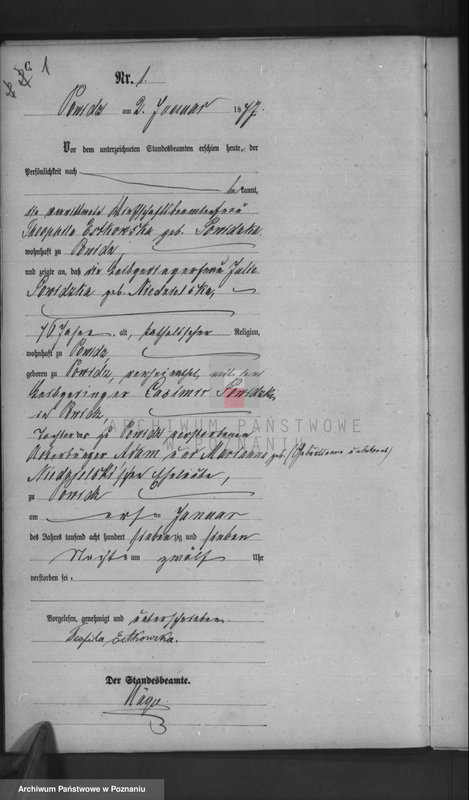 C. 1
Nr. 1.
Powidz am 2. Januar 1877.
Vor dem unterzeichneten Standesbeamten erschien heute, der
Persönlichkeit nach
be kannt,
die verwittwete Wirthschaftsbeamtenfrau
Theophila Estkowska geb. Powidzka
wohnhaft zu Powidz,
und zeigte an, daß die Leibgedingerfrau Julie
Powidzka geb. Niedzielska,
76 Jahre alt, katholischer Religion,
wohnhaft zu Powidz
geboren zu Powidz, verheirathet mit dem
Leibgedinger Casimir Powidzki,
in Powidz
Tochter der zu Powidz verstorbenen
Ackerbürger Adam und Marianna geb. (Geburtsname unbekannt)
Niedzielski'schen Eheleute,
zu Powidz
am ersten Januar
des Jahres tausend acht hundert siebenzig und sieben
Nachts um zwölf Uhr
verstorben sei.
Vorgelesen, genehmigt und unterschrieben.
Teofila Estkowska.
Der Standesbeamte.
ARCHIWUM PAŃSTWOWE
W POZNANIU
Archiwum Państwowe w Poznaniu